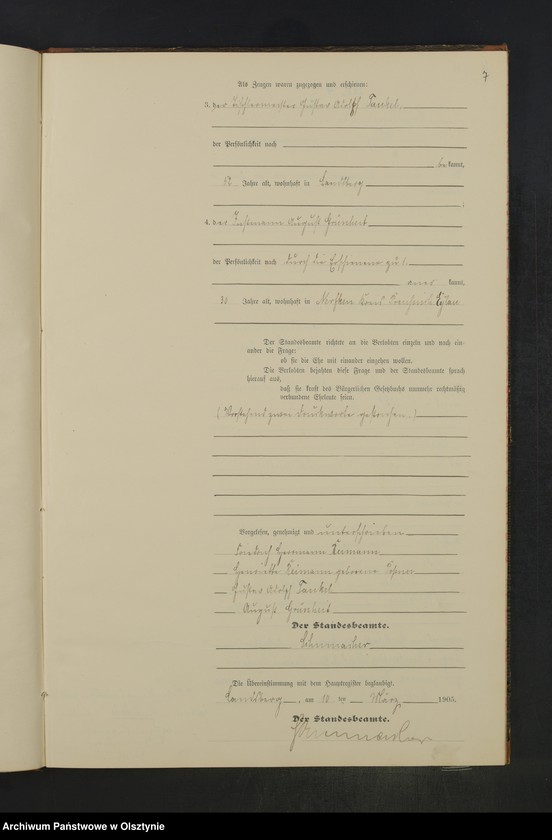 7
Als Zeugen waren zugezogen und erschienen:
3. der Tischlermeister Gustav Adolf Tankel
der Persönlichkeit nach
bekannt,
Jahre alt, wohnhaft in Landsberg
;
4. der Instmann August Grünheit
der Persönlichkeit nach durch die Erschienene zu 1
anerkannt,
Jahre alt, wohnhaft in Kreis Preußisch Eylau
Der Standesbeamte richtete an die Verlobten einzeln und nach ein-
ander die Frage:
ob sie die Ehe mit einander eingehen wollen.
Die Verlobten bejahten diese Frage und der Standesbeamte sprach
hierauf aus,
daß sie kraft des Bürgerlichen Gesetzbuchs nunmehr rechtmäßig
verbundene Eheleute seien.
(Vorstehend zwei Druckworte gestrichen.)
Vorgelesen, genehmigt und unterschrieben
Friedrich Herrmann Reimann
Henriette Reimann geborene
Gustav Adolf Tankel
August Grünheit
Der Standesbeamte.
Schumacher
Die Übereinstimmung mit dem Hauptregister beglaubigt.
Landsberg, am 10 ten März 1905.
Der Standesbeamte.
Schumacher
Archiwum Państwowe w Olsztynie